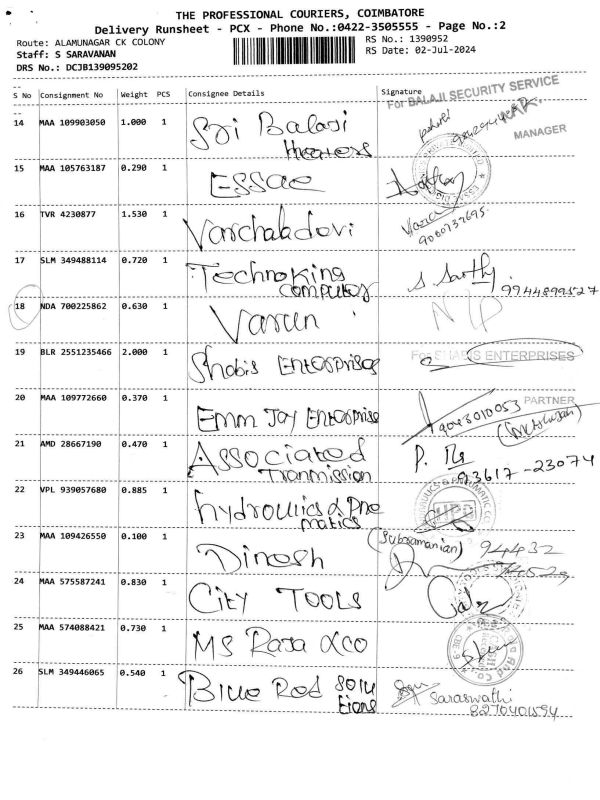 THE PROFESSIONAL COURIERS, COIMBATORE
Delivery Runsheet - PCX - Phone No.:0422-3505555 - Page No.:2
Route: ALAMUNAGAR CK COLONY
RS No.: 1390952
Staff: S SARAVANAN
RS Date: 02-Jul-2024
DRS No.: DCJB139095202
S No Consignment No Weight PCS Consignee Details Signature
For BALAJI SECURITY SERVICE
14 MAA 109903050 1.000 1 Sri Balaji
MANAGER
15 MAA 105763187 0.290 1 ESSAE
16 TVR 4230877 1.530 1 Varchaladevi
9080737695
17 SLM 349488114 0.720 1 Technoking
computer
S. Sarthy
9944899527
18 NDA 700225862 0.630 1 Varun N/P
19 BLR 2551235466 2.000 1 Shobis Enterprises For SHABIS ENTERPRISES
20 MAA 109772660 0.370 1 Emm Jay Enterprise
PARTNER
9043010053
21 AMD 28667190 0.470 1 Associated
Tranmission
P. Rs
93617-23074
22 VPL 939057680 0.885 1 hydroulics & Pne
matics
23 MAA 109426550 0.100 1 Dinesh
(Subramanian) 94432
74529
24 MAA 575587241 0.830 1 City TOOLS
25 MAA 574088421 0.730 1 MS Raja &co
26 SLM 349446065 0.540 1 Blue Red Solu
tions
Saraswathi
8270401594